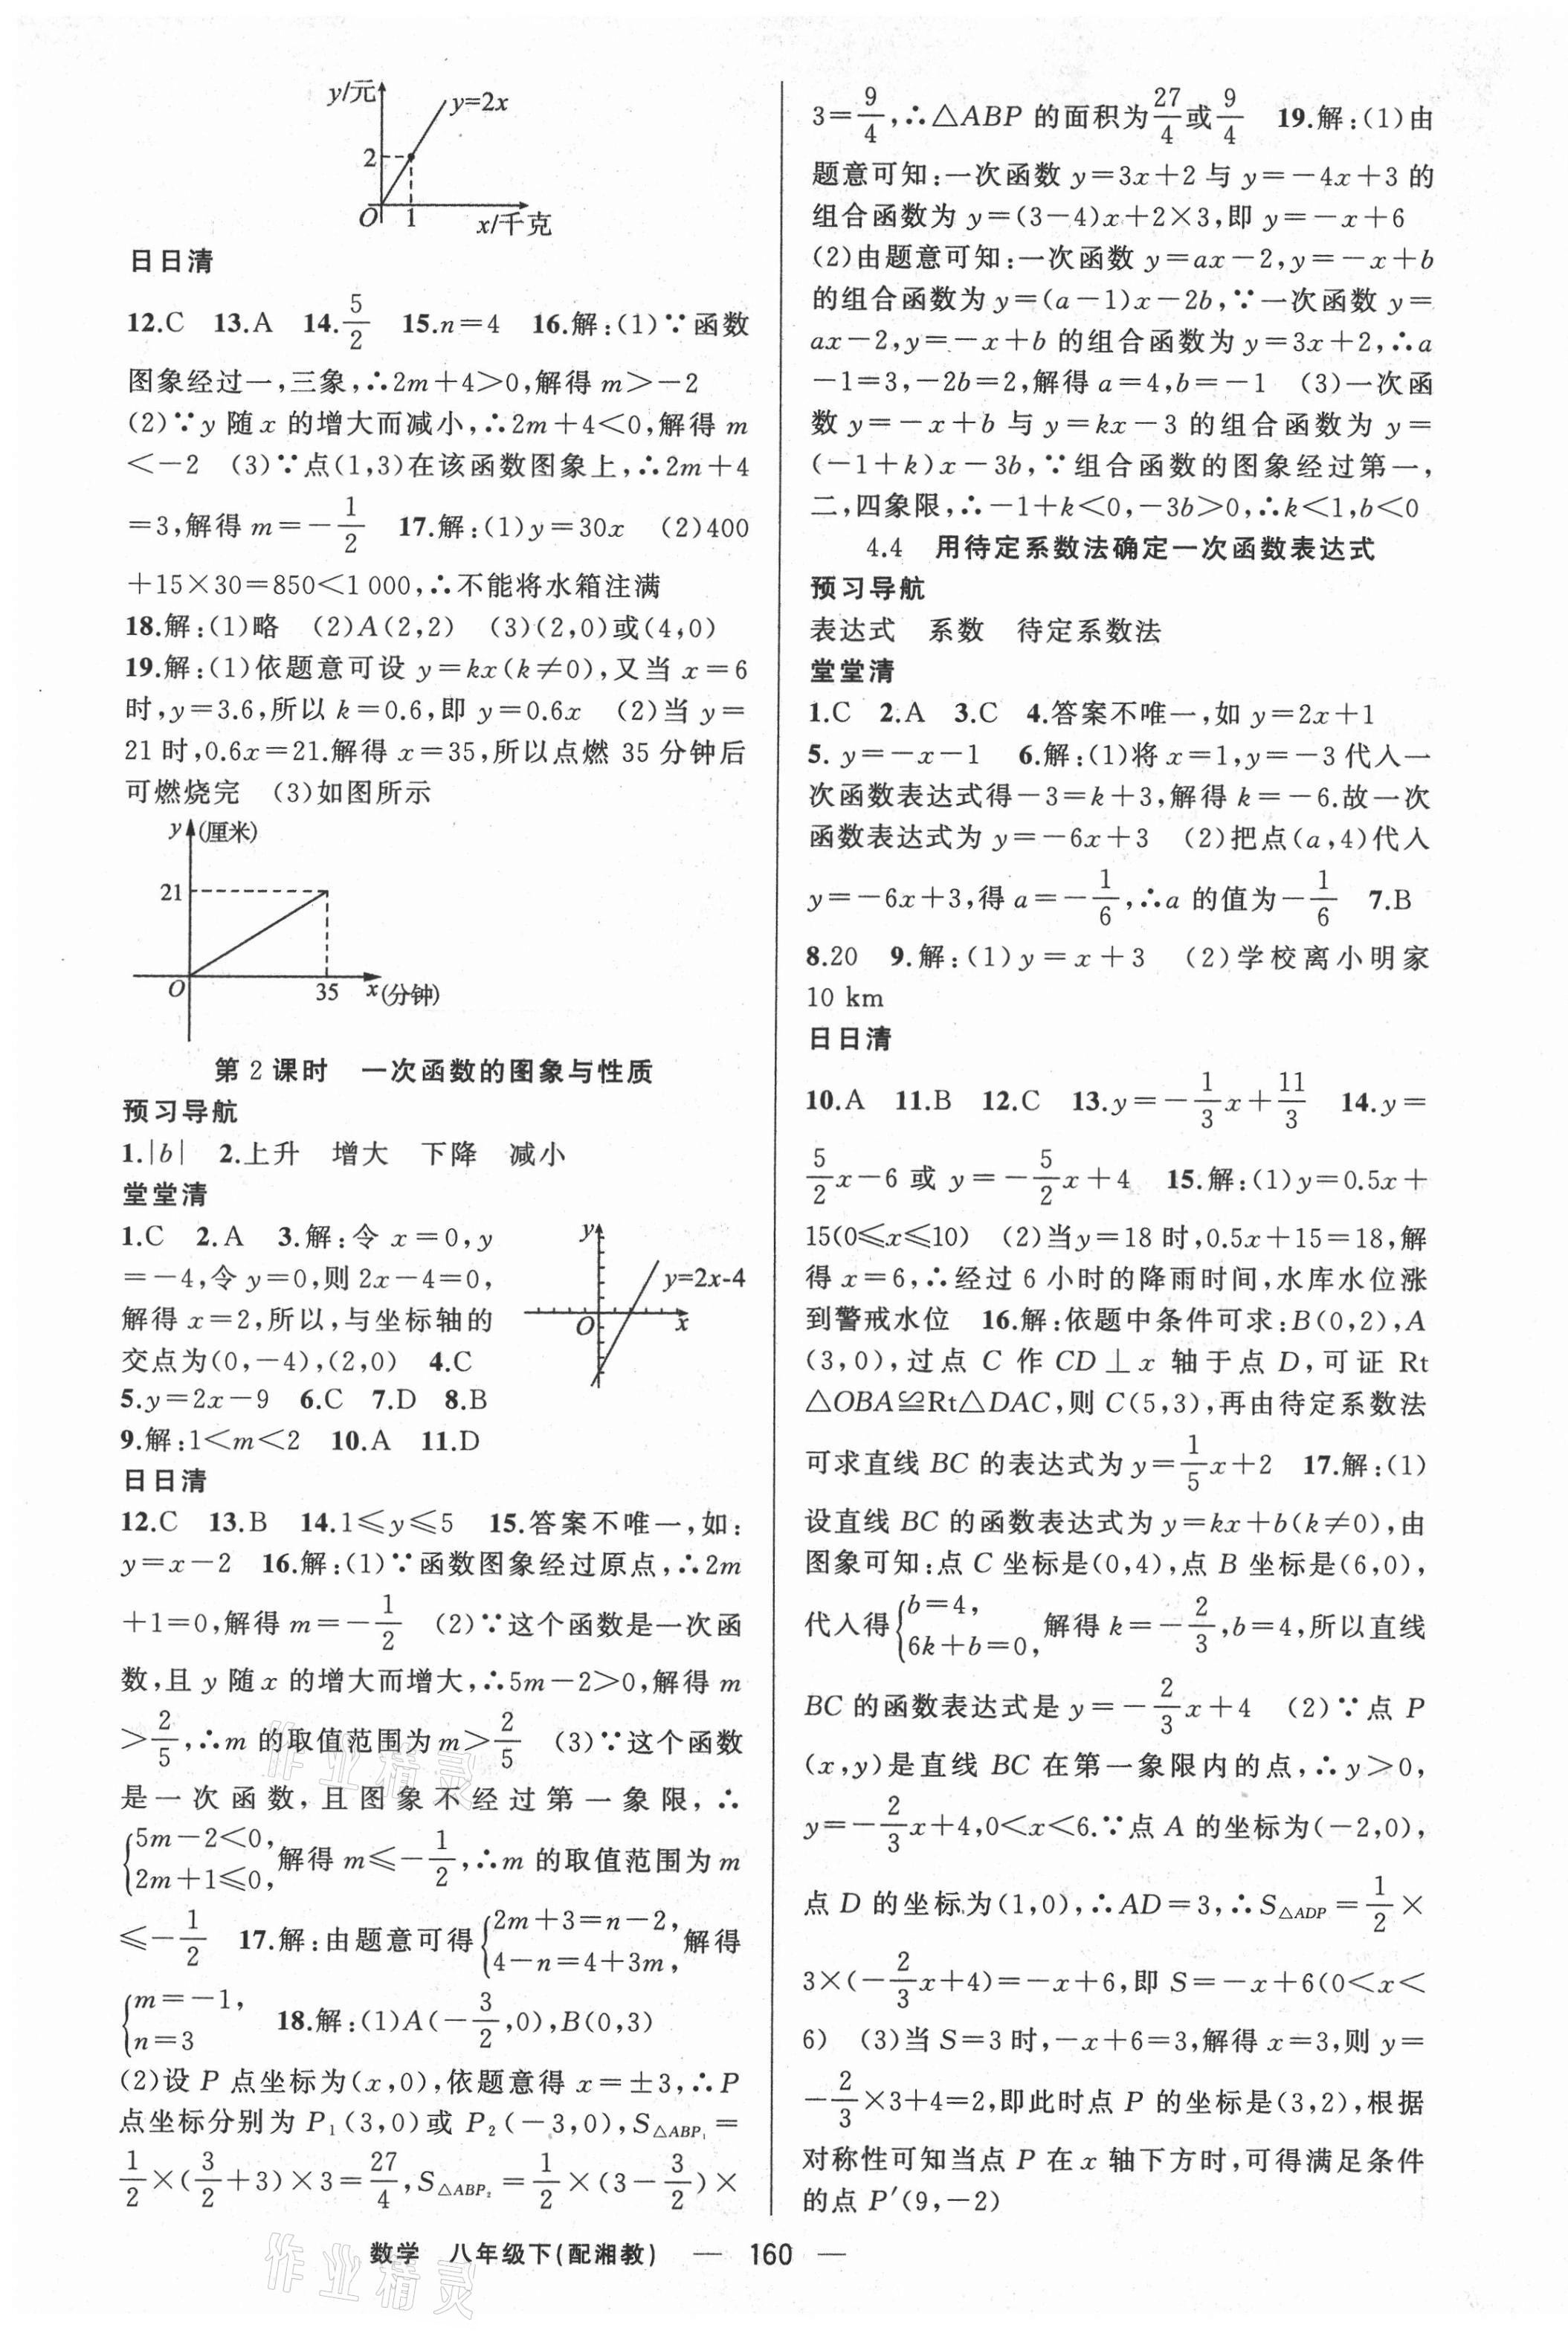 y/元
y=2x
2
O
1
x/千克
日日清
12.C 13.A 14.5/2 15.n=4 16.解:(1)∵函数
图象经过一,三象,∴2m+4>0,解得 m>-2
(2)∵y 随 x 的增大而减小,∴2m+4<0,解得 m
<-2 (3)∵点(1,3)在该函数图象上,∴2m+4
=3,解得 m=-1/2 17.解:(1)y=30x (2)400
+15×30=850<1 000,∴不能将水箱注满
18.解:(1)略 (2)A(2,2) (3)(2,0)或(4,0)
19.解:(1)依题意可设 y=kx(k≠0),又当 x=6
时,y=3.6,所以 k=0.6,即 y=0.6x (2)当 y=
21 时,0.6x=21.解得 x=35,所以点燃 35 分钟后
可燃烧完 (3)如图所示
y (厘米)
21
O
35
x(分钟)
第 2 课时 一次函数的图象与性质
预习导航
1.|b| 2.上升 增大 下降 减小
堂堂清
1.C 2.A 3.解:令 x=0,y
=-4,令 y=0,则 2x-4=0,
解得 x=2,所以,与坐标轴的
交点为(0,-4),(2,0) 4.C
y
y=2x-4
O
x
5.y=2x-9 6.C 7.D 8.B
9.解:1<m<2 10.A 11.D
日日清
12.C 13.B 14.1≤y≤5 15.答案不唯一,如:
y=x-2 16.解:(1)∵函数图象经过原点,∴2m
+1=0,解得 m=-1/2 (2)∵这个函数是一次函
数,且 y 随 x 的增大而增大,∴5m-2>0,解得 m
>2/5,∴m 的取值范围为 m>2/5 (3)∵这个函数
是一次函数,且图象不经过第一象限,∴
{5m-2<0, 2m+1≤0, 解得 m≤-1/2,∴m 的取值范围为 m
≤-1/2 17.解:由题意可得{2m+3=n-2, 4-n=4+3m, 解得
{m=-1, n=3 18.解:(1)A(-3/2,0),B(0,3)
(2)设 P 点坐标为(x,0),依题意得 x=±3,∴P
点坐标分别为 P₁(3,0)或 P₂(-3,0),S△ABP₁=
1/2×(3/2+3)×3=27/4,S△ABP₂=1/2×(3-3/2)×
3=9/4,∴△ABP 的面积为27/4或9/4 19.解:(1)由
题意可知:一次函数 y=3x+2 与 y=-4x+3 的
组合函数为 y=(3-4)x+2×3,即 y=-x+6
(2)由题意可知:一次函数 y=ax-2,y=-x+b
的组合函数为 y=(a-1)x-2b,∵一次函数 y=
ax-2,y=-x+b 的组合函数为 y=3x+2,∴a
-1=3,-2b=2,解得 a=4,b=-1 (3)一次函
数 y=-x+b 与 y=kx-3 的组合函数为 y=
(-1+k)x-3b,∵组合函数的图象经过第一,
二,四象限,∴-1+k<0,-3b>0,∴k<1,b<0
4.4 用待定系数法确定一次函数表达式
预习导航
表达式 系数 待定系数法
堂堂清
1.C 2.A 3.C 4.答案不唯一,如 y=2x+1
5. y=-x-1 6.解:(1)将 x=1,y=-3 代入一
次函数表达式得-3=k+3,解得 k=-6.故一次
函数表达式为 y=-6x+3 (2)把点(a,4)代入
y=-6x+3,得 a=-1/6,∴a 的值为-1/6 7.B
8.20 9.解:(1)y=x+3 (2)学校离小明家
10 km
日日清
10.A 11.B 12.C 13.y=-1/3x+11/3 14.y=
5/2x-6 或 y=-5/2x+4 15.解:(1)y=0.5x+
15(0≤x≤10) (2)当y=18 时,0.5x+15=18,解
得 x=6,∴经过 6 小时的降雨时间,水库水位涨
到警戒水位 16.解:依题中条件可求:B(0,2),A
(3,0),过点 C 作 CD⊥x 轴于点 D,可证 Rt
△OBA≌Rt△DAC,则 C(5,3),再由待定系数法
可求直线 BC 的表达式为 y=1/5x+2 17.解:(1)
设直线 BC 的函数表达式为 y=kx+b(k≠0),由
图象可知:点 C 坐标是(0,4),点 B 坐标是(6,0),
代入得{b=4, 6k+b=0, 解得 k=-2/3,b=4,所以直线
BC 的函数表达式是 y=-2/3x+4 (2)∵点 P
(x,y)是直线 BC 在第一象限内的点,∴y>0,
y=-2/3x+4,0<x<6.∵点 A 的坐标为(-2,0),
点 D 的坐标为(1,0),∴AD=3,∴S△ADP=1/2×
3×(-2/3x+4)=-x+6,即 S=-x+6(0<x<
6) (3)当 S=3 时,-x+6=3,解得 x=3,则 y=
-2/3×3+4=2,即此时点 P 的坐标是(3,2),根据
对称性可知当点 P 在 x 轴下方时,可得满足条件
的点 P′(9,-2)
数学 八年级下(配湘教) — 160 —
作业精灵
作业精灵